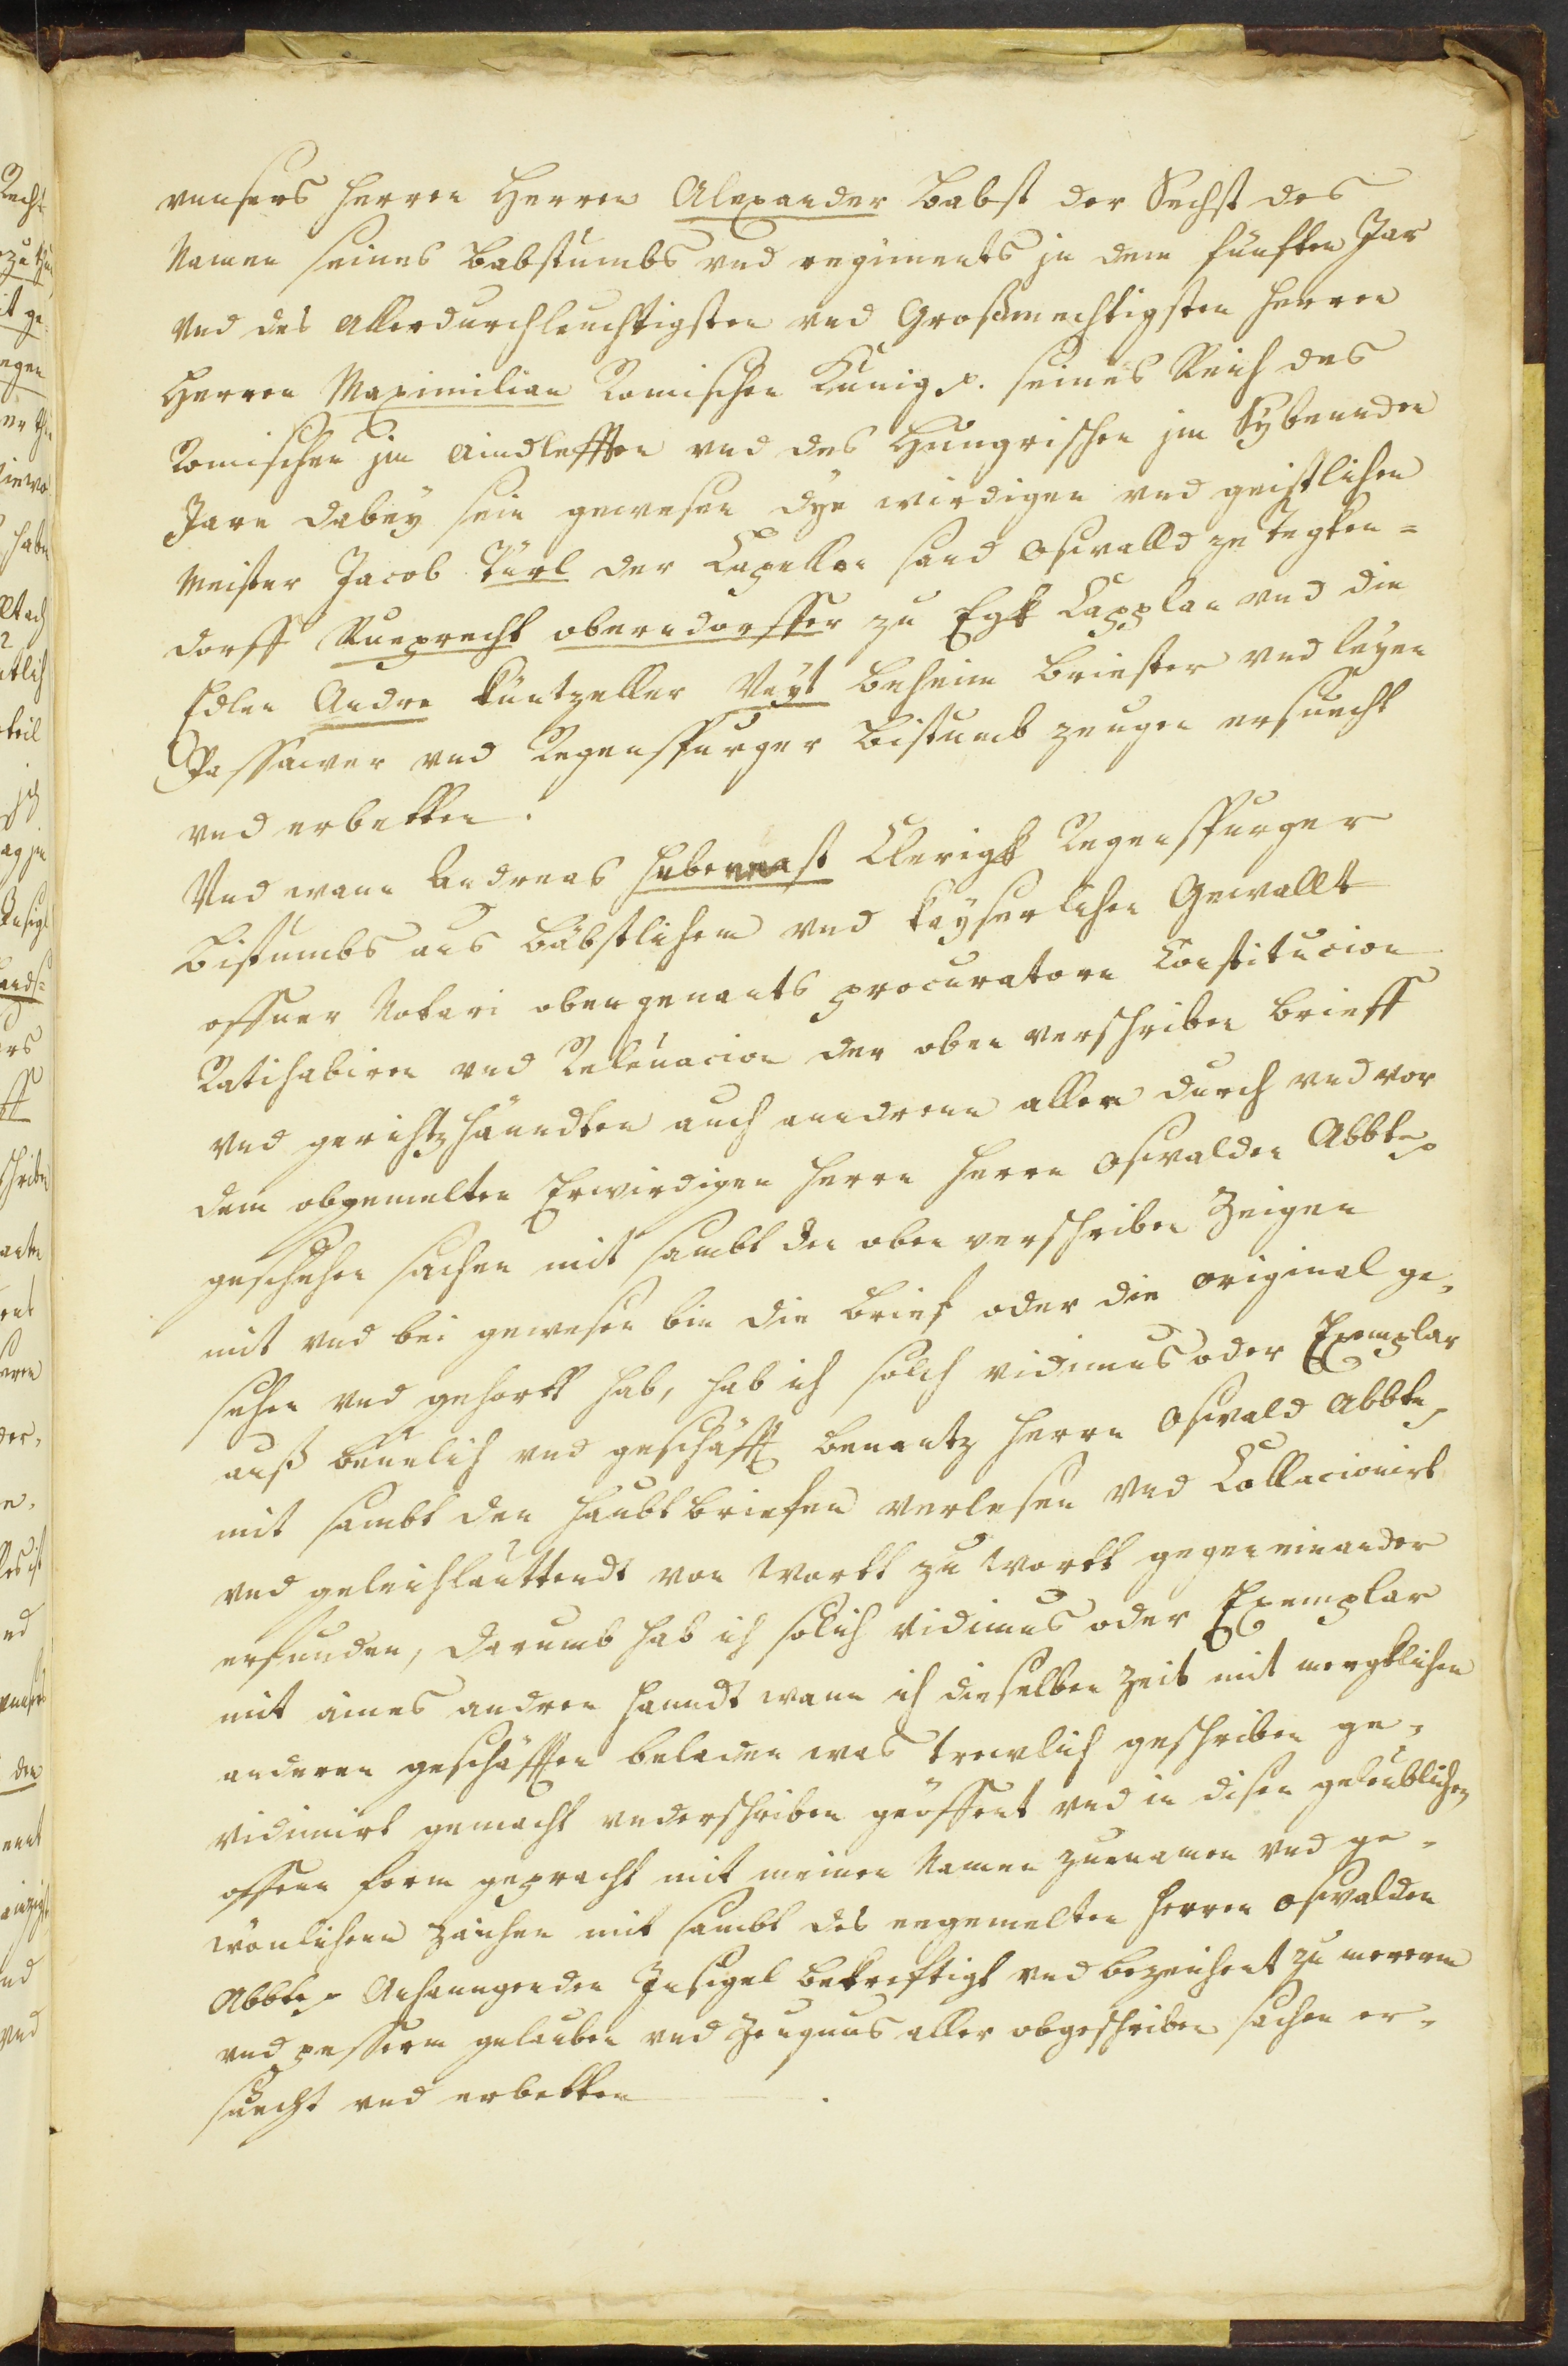 vnnsers herren Herren Alexander Babst der Sechst des
Namen seines Babstumbs vnd regiments jn dem fünften Jar
vnd des Allerdurchleuchtigsten vnd Großmechtigsten herren
Herren Maximilian Romischen Kunig p. seines Reich des
Romischen jm aindlefften vnd des Hungrischen jm Sybennden
Jarn dabey sein gewesen dye wirdigen vnd geistlichen
Meister Jacob Türl der Capellen sand Oswalld ze Tegken=
dorff Rueprecht oberndorffer zu Egk Capplan vnd die
Edlen Andre küntzeller Veyt Beheim briester vnd leyen
Passawer vnd Regenspurger Bistumb zeugen ersuecht
vnd erbetten.
Vnd wann Andreas habernast Clerigk Regenspurger
Bistumbs aus bäbstlichem vnd kayserlichen Gewallt
offner Notari obengenants procuratorn Constitucion
Ratihabiren vnd Releuacion der oben verschriben brieff
vnd gerichtzhänndten auch anndrenn allen durch vnd vor
dem obgemelten Erwirdigen herrn herrn Oswalden Abbte p
geschehen sachen mit sambt den oben verschriben Zeigen
mit vnd bei gewesen bin die brief oder die original ge-
sehen vnd gehortt hab, hab ich solch vidimus oder Exemplar
auß beuelich vnd geschäfft benantz herrn Oswald abbte p
mit sambt den haubtbriefen verlesen vnd Collacionirt
vnd geleichlauttendt von Wortt zu Wortt gegeneinander
erfunden, darumb hab ich solich vidimus oder Exemplar
mit aines andren hanndt wann ich dieselben Zeit mit mergklichen
anderen geschäfften beladen was trewlich geschriben ge-
vidimirt gemacht vnderschriben geöffent vnd in disen gelaublichen
offenn form gepracht mit meinen Namen zuenamen vnd ge-
wönlichenn zaichen mit sambt des eegemelten herren Oswalden
Abbte p Anhanngenden Insigel bekreftigt vnd bezeichent zu mererm
vnd pesserm gelauben vnd Zeugnus aller obgeschriben sachen er-
suecht vnd erbetten.